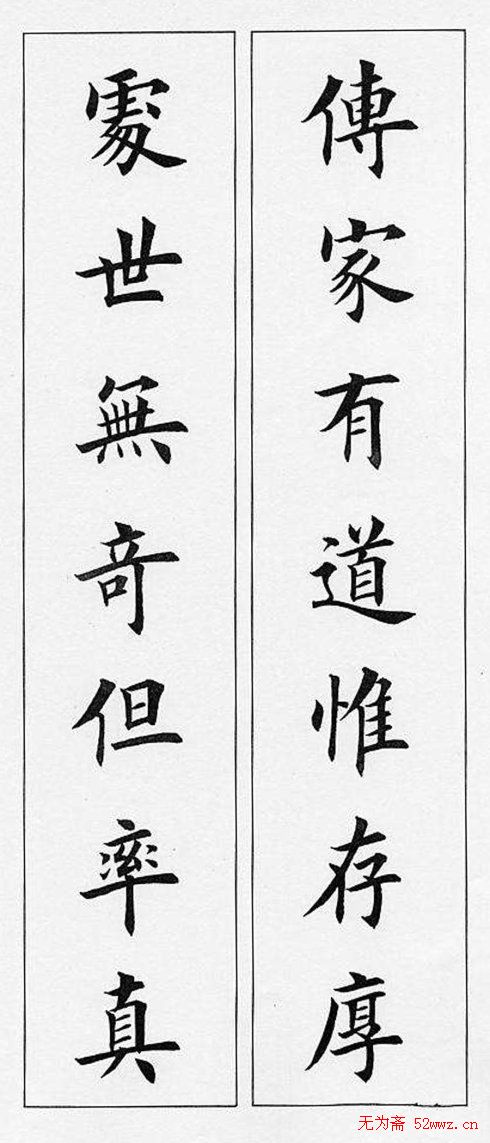 傳家有道惟存厚
處世無奇但率真
无为斋 52wwz.cn